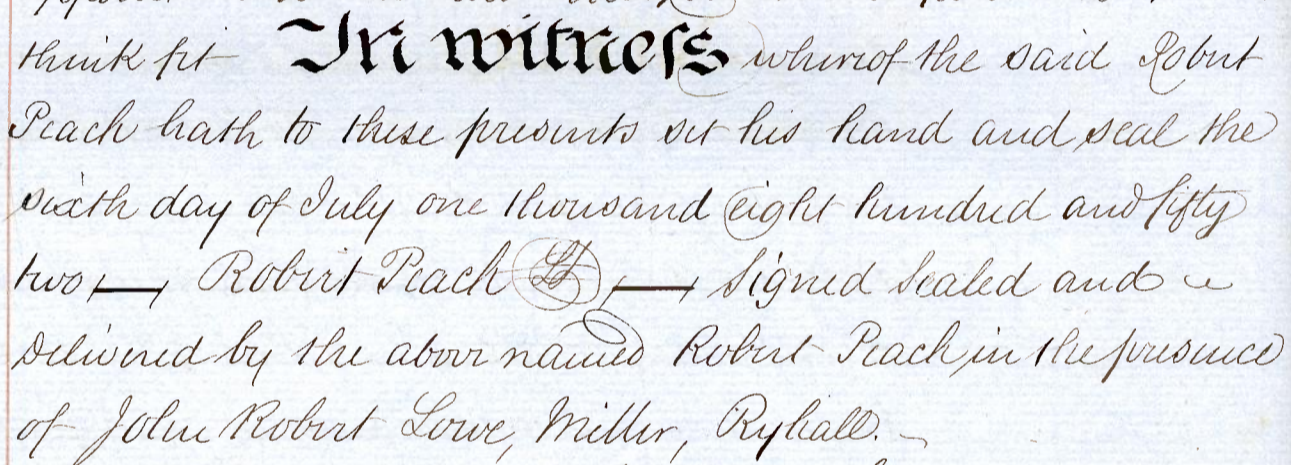 think fit In witness whereof the said Robert
Peach hath to these presents set his hand and seal the
sixth day of July one thousand eight hundred and fifty
two — Robert Peach LS — Signed Sealed and
delivered by the above named Robert Peach in the presence
of John Robert Lowe, Miller, Ryhall.